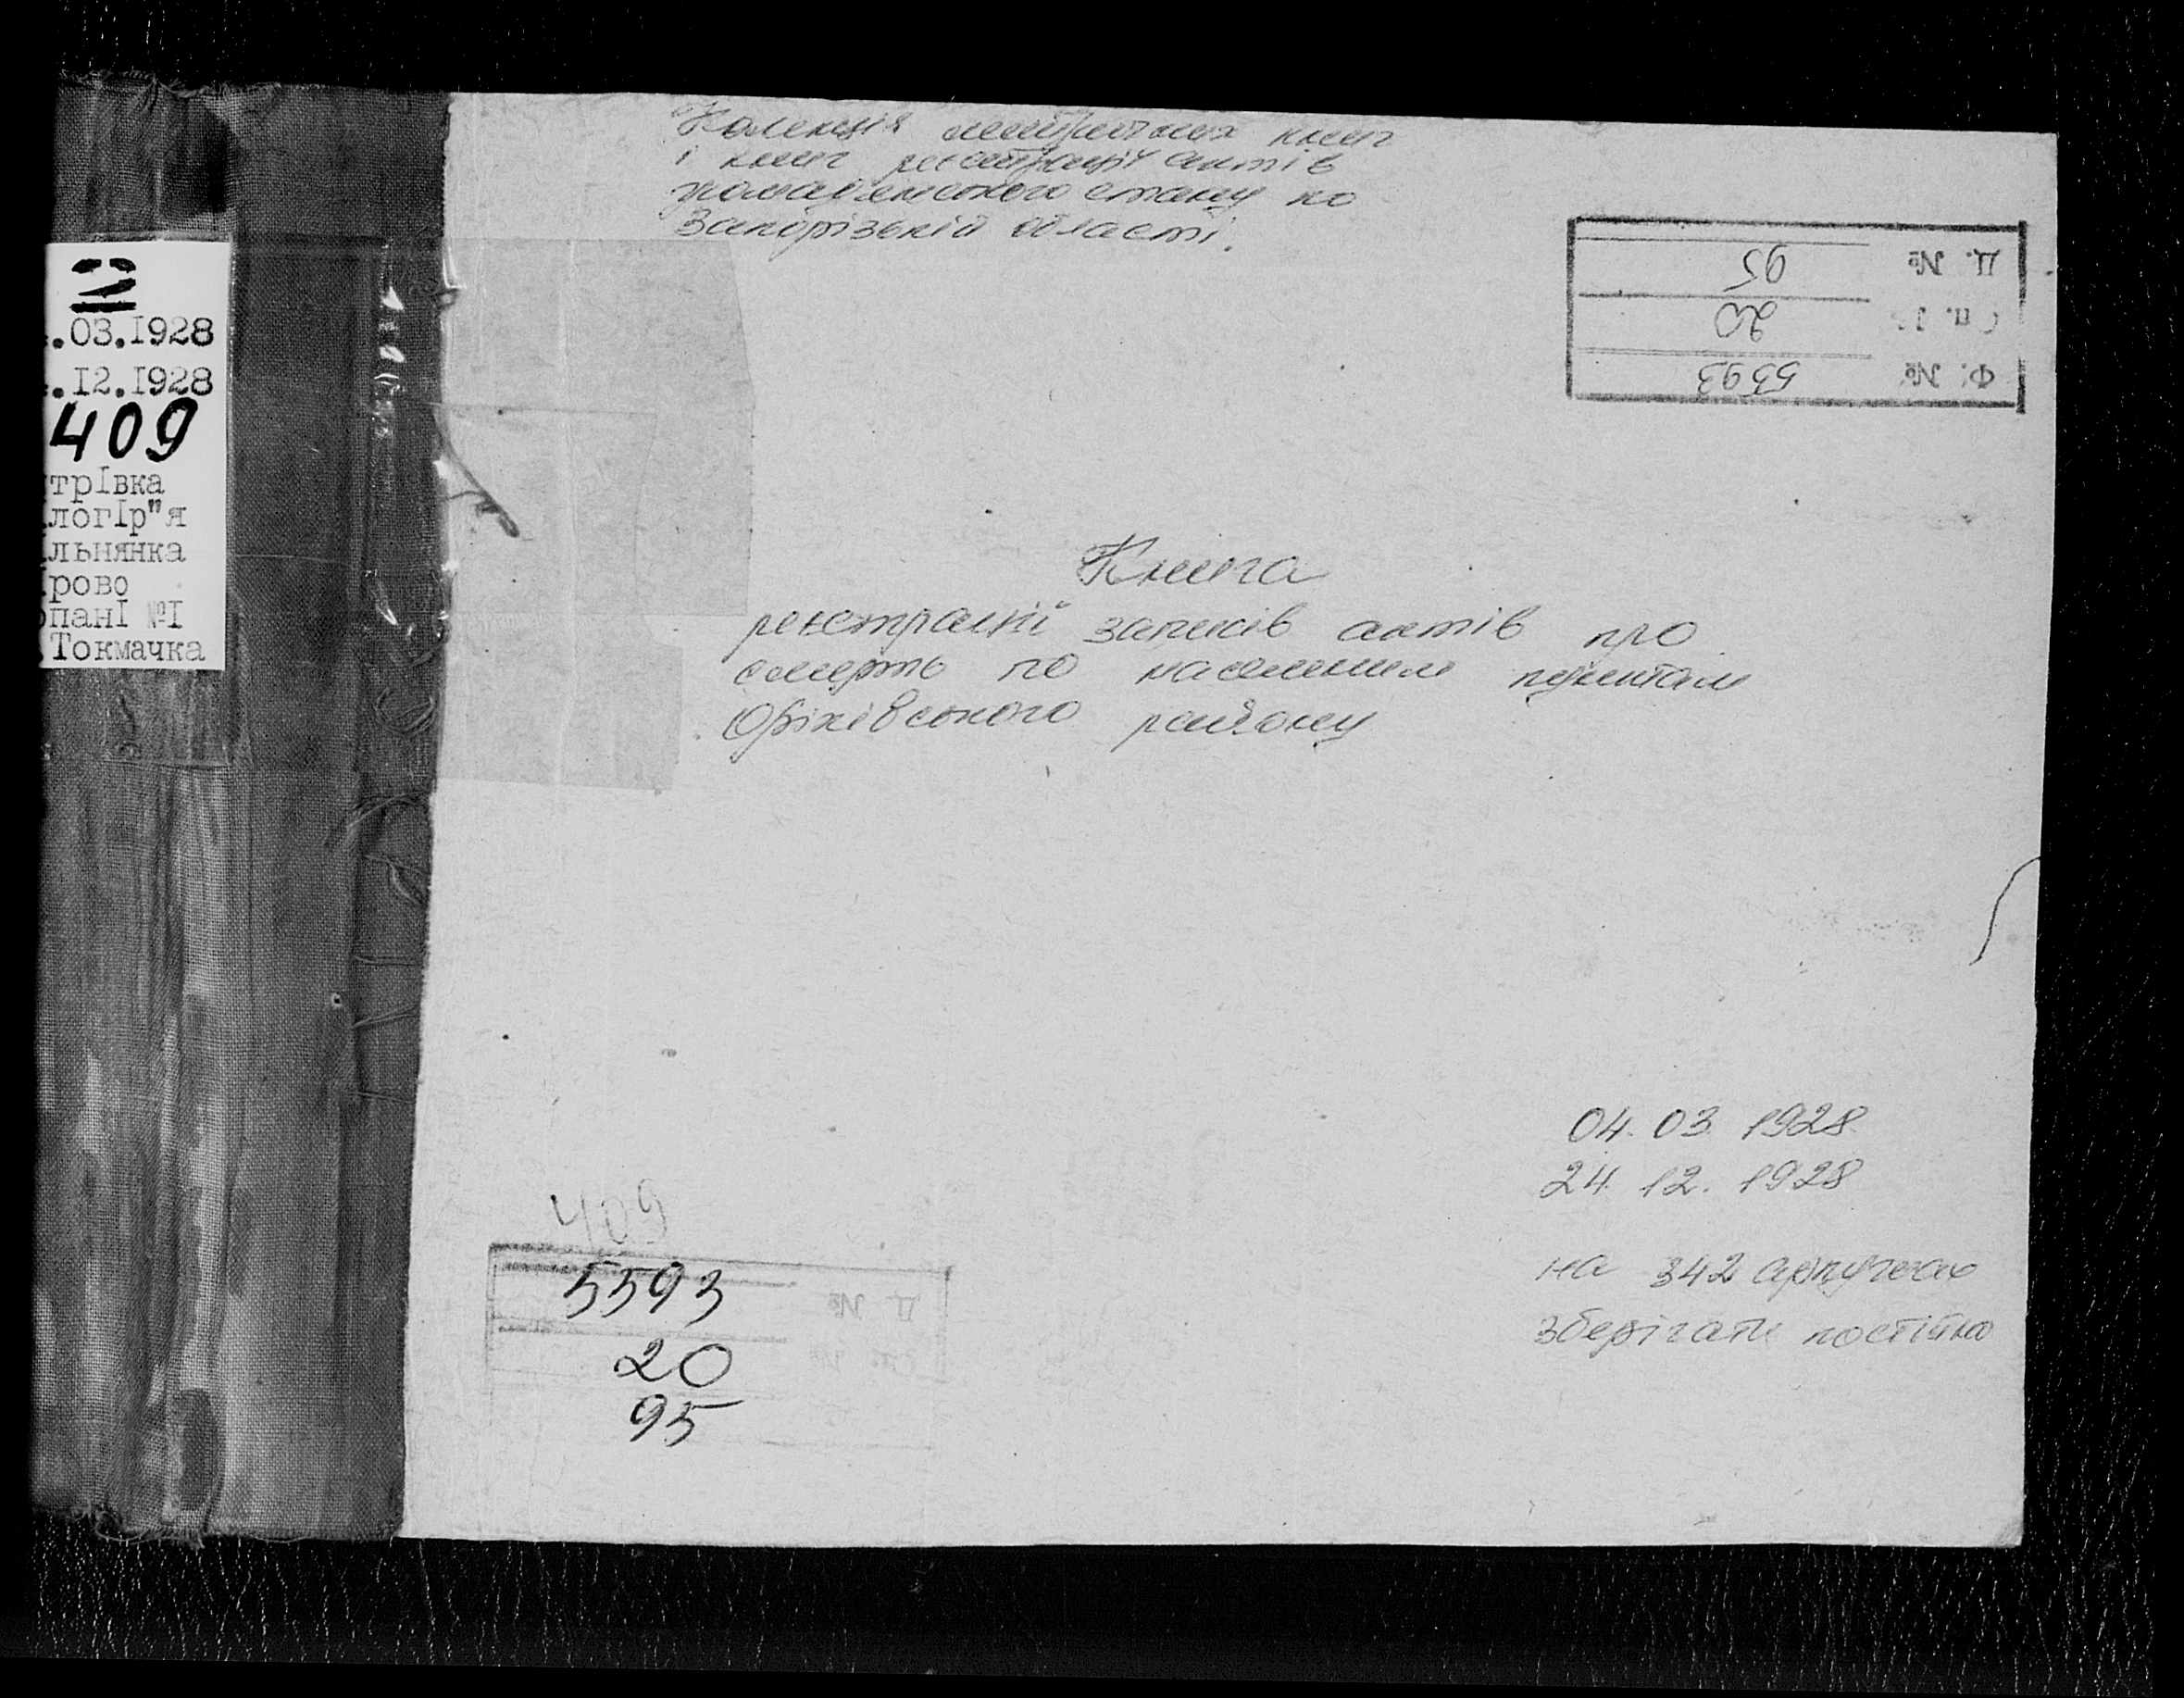 Колекція метричних книг
і книг реєстрації актів
громадянського стану по
Запорізькій області.
Д. № 95
Оп. № 20
Ф. № 5593
.03.1928
.I2.I928
409
трIвка
логIр"я
льнянка
рово
панI №I
Токмачка
Книга
реєстрації записів актів про
смерть по населеним пунктам
Оріхівського району
04.03.1928
24.12.1928
на 342 аркушах
зберігати постійно
409
5593
20
95
Д. №